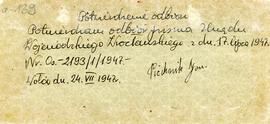 Potwierdzenie odbioru
Potwierdzam odbiór pisma Urzędu
Wojewódzkiego Wrocławskiego z dn. 17 lipca 1947.
Nr. Oz.-2193/1/1947.-
Wołów dn. 24. VII 1947.